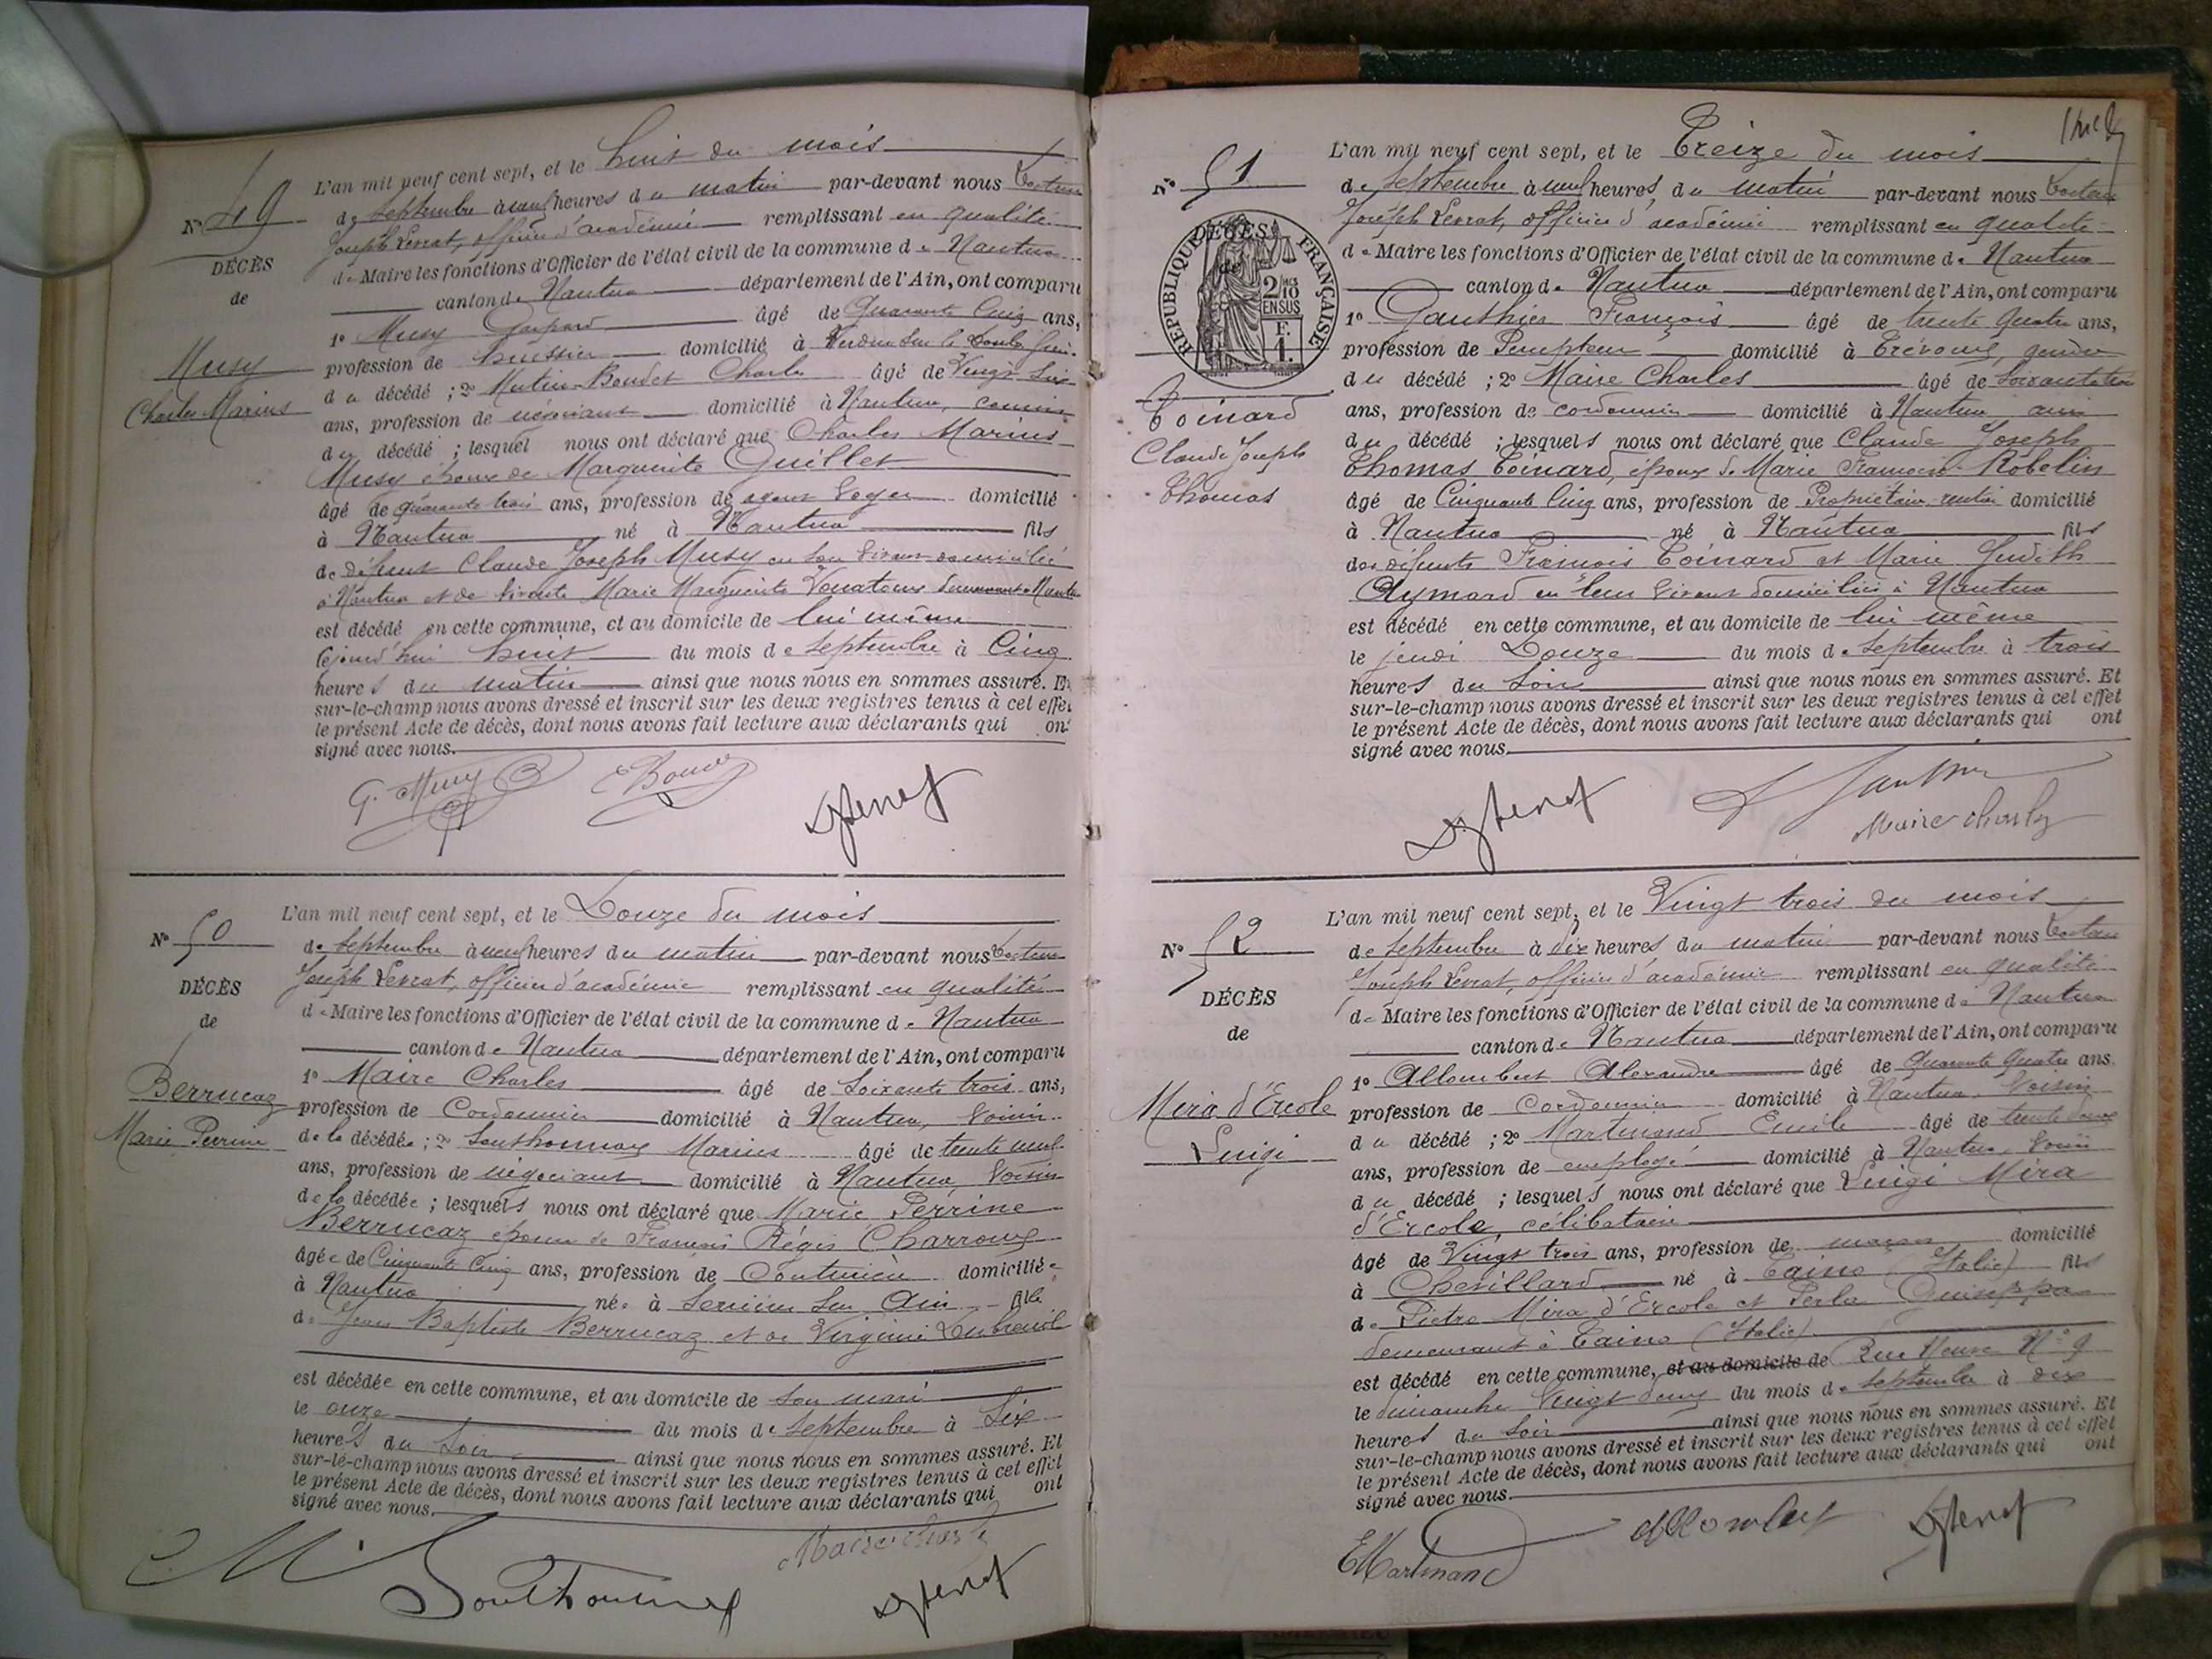 N° 49
DÉCÈS
de
Musy
Charles Marius
L'an mil neuf cent sept, et le huit du mois
de septembre à neuf heures du matin par-devant nous Docteur
Joseph Levrat, officier d'académie remplissant en qualité
de Maire les fonctions d'Officier de l'état civil de la commune de Nantua
canton de Nantua département de l'Ain, ont comparu
1° Musy Gaspard âgé de Quarante Cinq ans,
profession de huissier domicilié à Verdun sur le Doubs
du décédé ; 2° Mutin-Boudet Charles âgé de Vingt six
ans, profession de négociant domicilié à Nantua, cousin
du décédé ; lesquel nous ont déclaré que Charles Marius
Musy époux de Marguerite Guillet
âgé de quarante trois ans, profession de agent voyer domicilié
à Nantua né à Nantua fils
de défunt Claude Joseph Musy en son vivant domicilié
à Nantua et de vivante Marie Marguerite demeurant à Nantua
est décédé en cette commune, et au domicile de lui même
cejourd'hui huit du mois de septembre à Cinq
heures du matin ainsi que nous nous en sommes assuré. Et
sur-le-champ nous avons dressé et inscrit sur les deux registres tenus à cet effet
le présent Acte de décès, dont nous avons fait lecture aux déclarants qui ont
signé avec nous.
G. Musy
N° 50
DÉCÈS
de
Berrucaz
Marie Perrine
L'an mil neuf cent sept, et le Douze du mois
de septembre à neuf heures du matin par-devant nous Docteur
Joseph Levrat, officier d'académie remplissant en qualité
de Maire les fonctions d'Officier de l'état civil de la commune de Nantua
canton de Nantua département de l'Ain, ont comparu
1° Maire Charles âgé de soixante trois ans,
profession de Cordonnier domicilié à Nantua, voisin
de la décédée ; 2° Southonnax Marius âgé de trente neuf
ans, profession de négociant domicilié à Nantua, voisin
de la décédée ; lesquels nous ont déclaré que Marie Perrine
Berrucaz épouse de François Régis Charroux
âgée de Cinquante Cinq ans, profession de Couturière domiciliée
à Nantua née à Serrières sur Ain fille
de Jean Baptiste Berrucaz et de Virginie Dubreuil
est décédée en cette commune, et au domicile de son mari
le onze du mois de septembre à six
heures du soir ainsi que nous nous en sommes assuré. Et
sur-le-champ nous avons dressé et inscrit sur les deux registres tenus à cet effet
le présent Acte de décès, dont nous avons fait lecture aux déclarants qui ont
signé avec nous.
Maire Charles
M. Southonnax
N° 51
DÉCÈS
de
RÉPUBLIQUE FRANÇAISE
2/10
EN SUS
F.
1.
Toinard
Claude Joseph
Thomas
L'an mil neuf cent sept, et le Treize du mois
de septembre à neuf heures du matin par-devant nous Docteur
Joseph Levrat, officier d'académie remplissant en qualité
de Maire les fonctions d'Officier de l'état civil de la commune de Nantua
canton de Nantua département de l'Ain, ont comparu
1° Gauthier François âgé de trente quatre ans,
profession de Percepteur domicilié à Trévoux, gendre
du décédé ; 2° Maire Charles âgé de soixante trois
ans, profession de cordonnier domicilié à Nantua ami
du décédé ; lesquels nous ont déclaré que Claude Joseph
Thomas Toinard, époux de Marie Françoise Robelin
âgé de Cinquante Cinq ans, profession de Propriétaire rentier domicilié
à Nantua né à Nantua fils
des défunts François Toinard et Marie Judith
Aymard en leur vivant domiciliés à Nantua
est décédé en cette commune, et au domicile de lui même
le jeudi Douze du mois de septembre à trois
heures du soir ainsi que nous nous en sommes assuré. Et
sur-le-champ nous avons dressé et inscrit sur les deux registres tenus à cet effet
le présent Acte de décès, dont nous avons fait lecture aux déclarants qui ont
signé avec nous.
Maire Charles
N° 52
DÉCÈS
de
Mira d'Ercole
Luigi
L'an mil neuf cent sept, et le Vingt trois du mois
de septembre à dix heures du matin par-devant nous Docteur
Joseph Levrat, officier d'académie remplissant en qualité
de Maire les fonctions d'Officier de l'état civil de la commune de Nantua
canton de Nantua département de l'Ain, ont comparu
1° Allombert Alexandre âgé de Quarante Quatre ans.
profession de Cordonnier domicilié à Nantua, voisin
du décédé ; 2° Martinand Emile âgé de trente
ans, profession de employé domicilié à Nantua, voisin
du décédé ; lesquels nous ont déclaré que Luigi Mira
d'Ercole, célibataire
âgé de Vingt trois ans, profession de maçon domicilié
à Chevillard né à Taino (Italie) fils
de Pietro Mira d'Ercole et Perla Guiseppa
demeurant à Taino (Italie)
est décédé en cette commune, et au domicile de Rue Neuve N° 9
le dimanche Vingt deux du mois de septembre à dix
heures du soir ainsi que nous nous en sommes assuré. Et
sur-le-champ nous avons dressé et inscrit sur les deux registres tenus à cet effet
le présent Acte de décès, dont nous avons fait lecture aux déclarants qui ont
signé avec nous.
EMartinand Allombert